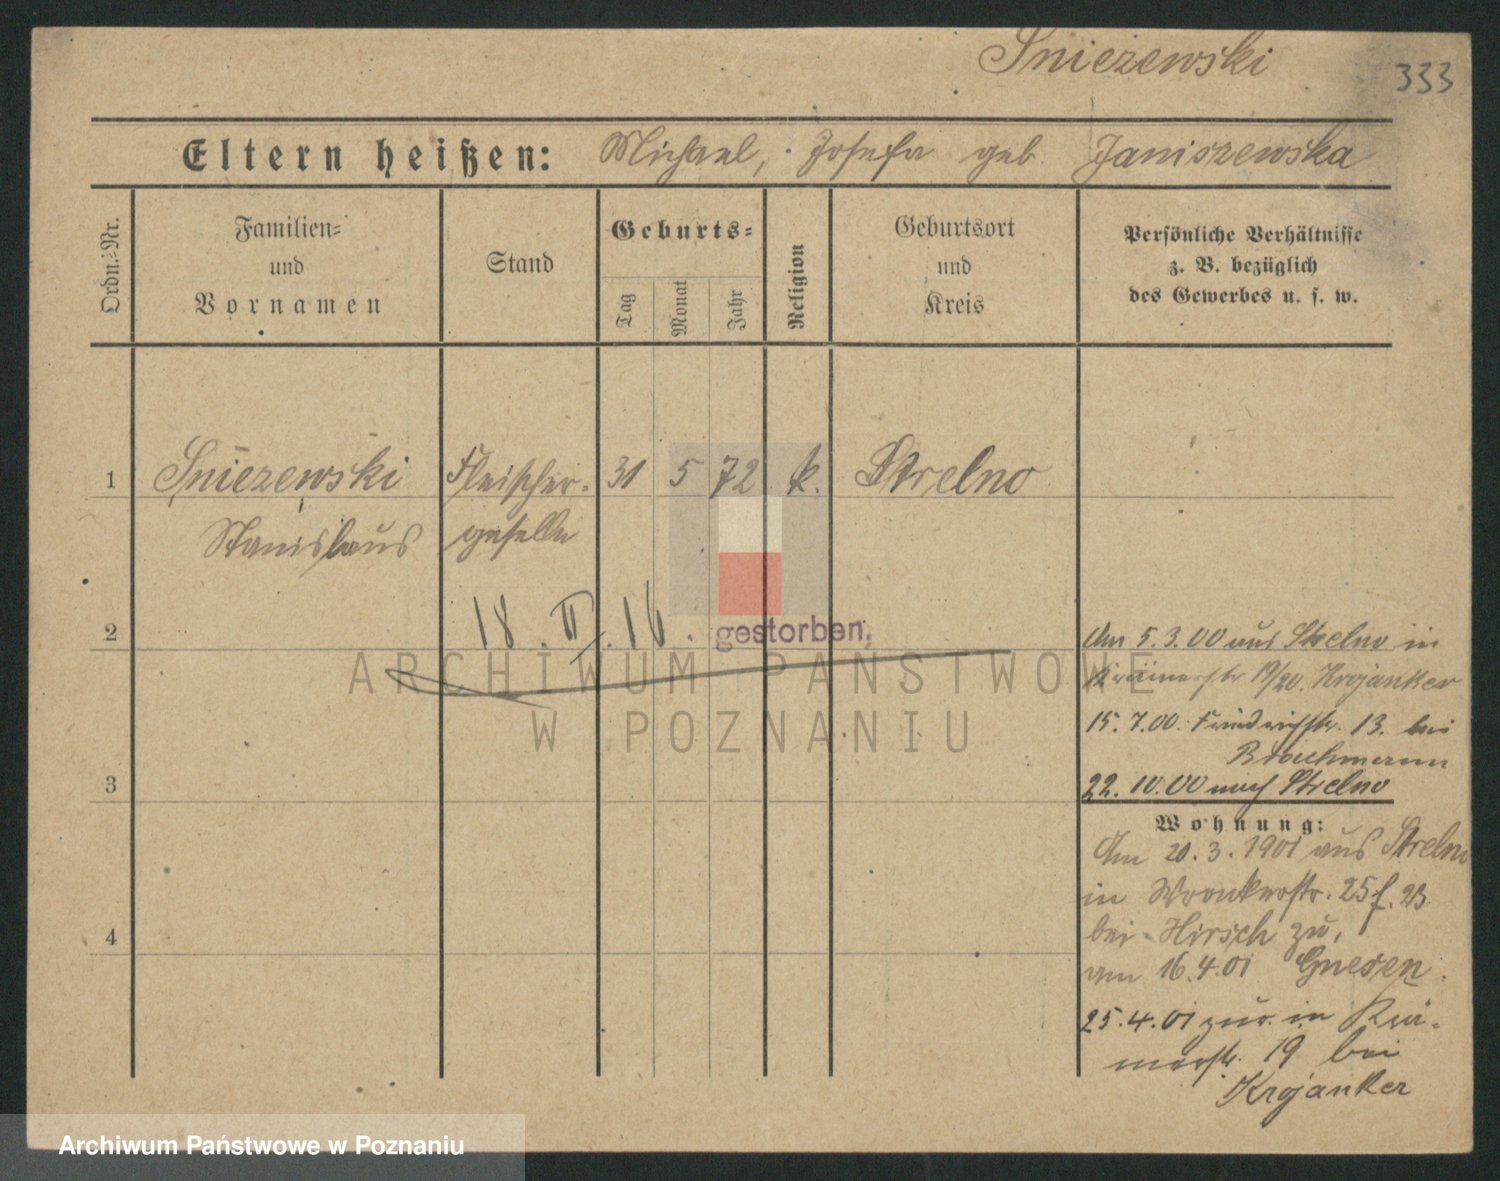 Sniezewski 333
Eltern heißen: Michael, Josefa geb. Janiszewska
Ordn.-Nr.
Familien-
und
Vornamen
Stand
Geburts-
Tag
Monat
Jahr
Religion
Geburtsort
und
Kreis
Persönliche Verhältnisse
z. B. bezüglich
des Gewerbes u. s. w.
1 Sniezewski Fleischer- 31 5 72 k. Strelno
Stanislaus geselle
2 18. II. 16. gestorben.
Am 5.3.00 aus Strelno in
19/20. Krojanker
15.7.00. Friedrichstr. 13. bei
Brachmann
3 22.10.00 nach Strelno
Wohnung:
Am 20.3.1901 aus Strelno
in Wronkerstr. 25
bei Hirsch zu,
4 am 16.4.01 Gnesen.
25.4.01 zur. in Krä-
merstr. 19 bei
Krojanker
ARCHIWUM PAŃSTWOWE
W POZNANIU
Archiwum Państwowe w Poznaniu